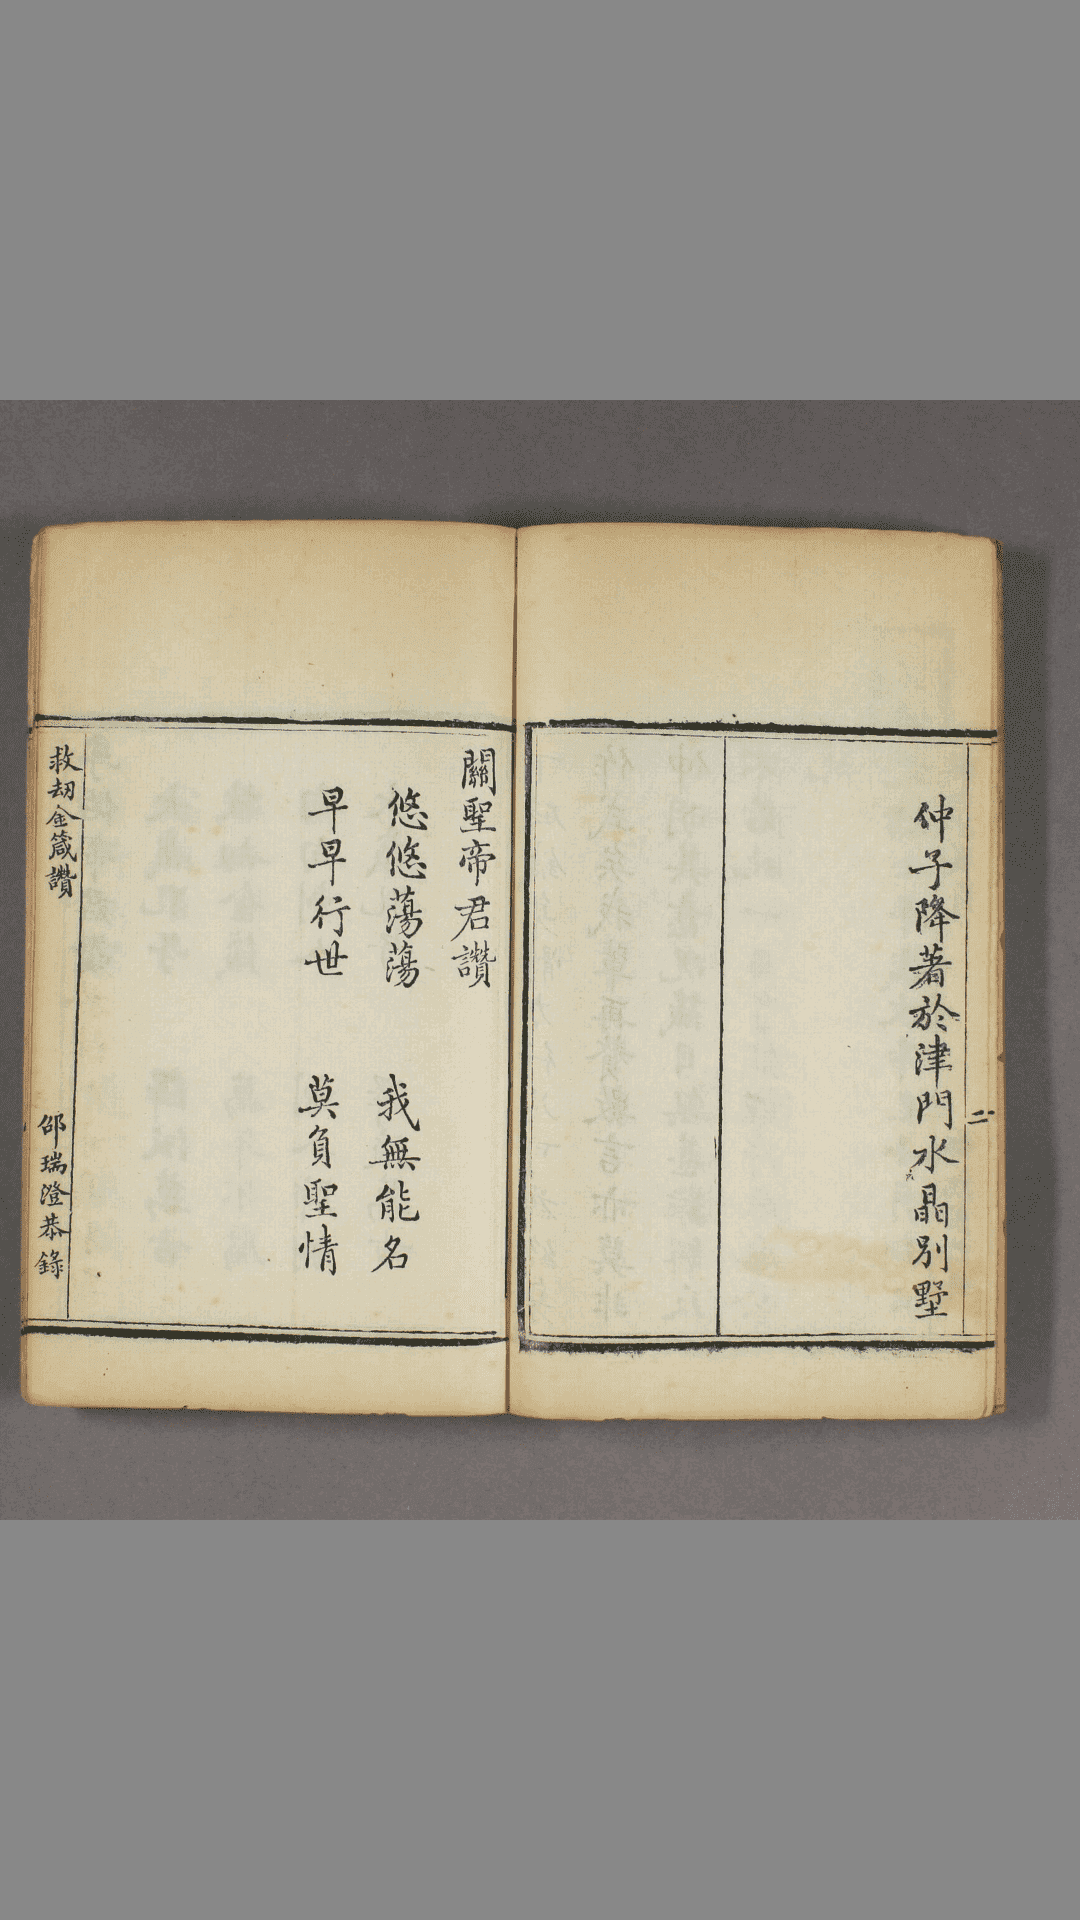 仲子降著於津門水晶別墅
二
關聖帝君讚
悠悠蕩蕩 我無能名
早早行世 莫負聖情
救刧金箴讚 邵瑞澄恭錄